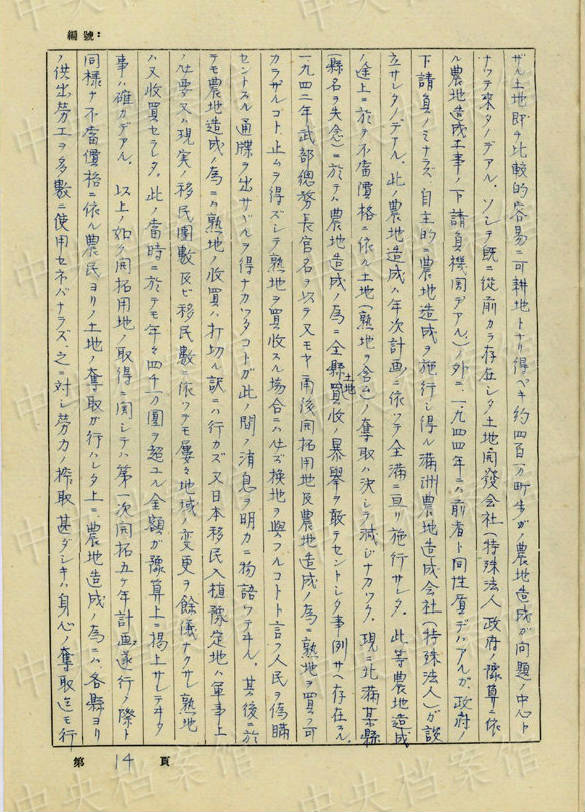 編號：
ザル土地即チ比較的容易ニ可耕地トナリ得ベキ約四百万町歩ガ農地造成ガ問題ノ中心ト
ナッテ来タノデアル。ソシテ既ニ従前カラ存在シタ土地開發会社(特殊法人政府ノ豫算ニ依
ル農地造成工事ノ下請負機関デアル。)ノ外ニ一九四四年ニハ前者ト同性質デハアルガ、政府
下請負ノミナラズ自主的ニ農地造成ヲ施行シ得ル満洲農地造成会社(特殊法人)ガ設
立サレタノデアル。此ノ農地造成ハ年次計画ニ依ッテ全満ニ亘リ施行サレタ。此等農地造成
ノ途上ニ於テ不當價格ニ依ル土地(熟地ヲ含ム)ノ奪取ハ決シテ減ジナカッタ。現ニ北満某縣
(縣名ヲ失念)ニ於テハ農地造成ノ為ニ全縣土地買收ノ暴舉ヲ敢テセントシタ事例サヘ存在スル。
一九四二年武部總務長官名ヲ以テ又モヤ爾後開拓用地及農地造成ノ為ニ熟地ヲ買フ可
カラザルコト、止ムヲ得ズシテ熟地ヲ買收スル場合ニハ必ズ換地ヲ與フルコトト言フ人民ヲ偽瞞
セントスル通牒ヲ出サザルヲ得ナカッタコトガ此ノ間ノ消息ヲ明カニ物語ッテヰル。其後ニ於
テモ農地造成ノ為ニスル熟地ノ收買ハ打切ル訳ニハ行カズ又日本移民入植豫定地ハ軍事上
ノ必要又ハ現実ノ移民團數及ビ移民數ニ依ッテモ屡々地域ノ変更ヲ餘儀ナクサレ熟地
ハ又收買セラレタ。此ノ當時ニ於テモ年々四千万圓ヲ超ユル金額ガ豫算上ニ揚上サレテヰタ
事ハ確カデアル。以上ノ如ク開拓用地ノ取得ニ関シテハ第一次開拓五ケ年計画遂行ノ際ト
同様ナ不當價格ニ依ル農民ヨリノ土地ノ奪取ガ行ハレタ上ニ、農地造成ノ為ニハ、各縣ヨリ
ノ供出勞工ヲ多數ニ使用セネバナラズ、之ニ対シ勞力ノ搾取甚ダシキハ身心ノ奪取迄モ行
第 14 頁
中央档案馆